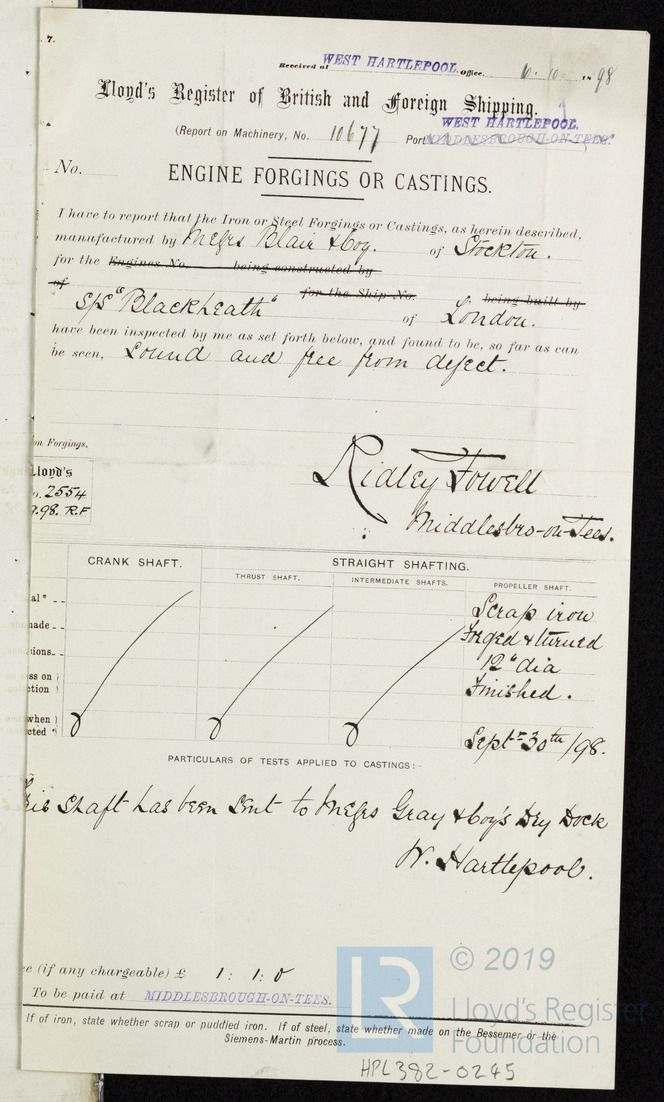 7.
Received at WEST HARTLEPOOL. Office. 10. 10 1898
Lloyd's Register of British and Foreign Shipping.
WEST HARTLEPOOL.
(Report on Machinery, No. 10677 Port MIDDLESBROUGH-ON-TEES.
No.
ENGINE FORGINGS OR CASTINGS.
I have to report that the Iron or Steel Forgings or Castings, as herein described,
manufactured by Messrs Blair & Coy. of Stockton.
for the Engines No. being constructed by
of for the Ship No. being built by
S/S "Blackheath" of London.
have been inspected by me as set forth below, and found to be, so far as can
be seen, Sound and free from defect.
on Forgings.
Lloyd's
o. 2554
9.98. R.F
Ridley Fowell
Middlesbro-on-Tees.
CRANK SHAFT. STRAIGHT SHAFTING.
THRUST SHAFT. INTERMEDIATE SHAFTS. PROPELLER SHAFT.
al"
made
sions
ss on )
ction )
when )
cted )
Scrap iron
Forged & turned
12" dia
Finished.
Septr 30th/98.
PARTICULARS OF TESTS APPLIED TO CASTINGS:-
his shaft has been sent to Messrs Gray & Coy's Dry Dock
W. Hartlepool.
e (if any chargeable) £ 1 : 1 : 0
To be paid at MIDDLESBROUGH-ON-TEES.
If of iron, state whether scrap or puddled iron. If of steel, state whether made on the Bessemer or the
Siemens-Martin process.
LR
© 2019
Lloyd's Register
Foundation
HPL382-0245